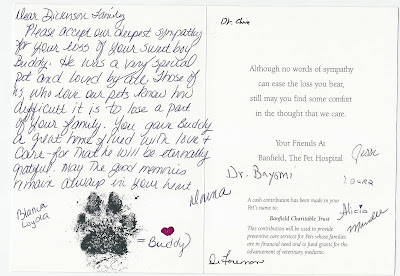 Dear Dickinson Family
Please accept our deepest sympathy
for your loss of your sweet boy
Buddy. He was a very special
pet and loved by all. Those of
us who love our pets know how
difficult it is to lose a part
of your family. You gave Buddy
a great home filled with love &
care - for that he will be eternally
grateful. May the good memories
remain always in your heart
Donna
Blanca
Loyola
= Buddy
Dr.
Although no words of sympathy
can ease the loss you bear,
still may you find some comfort
in the thought that we care.
Your Friends At
Banfield, The Pet Hospital
Dr. Bayomi
Laura
A cash contribution has been made in your
Pet's name to:
Banfield Charitable Trust
Alicia
This contribution will be used to provide
preventive care services for Pets whose families
are in financial need and to fund grants for the
advancement of veterinary medicine.